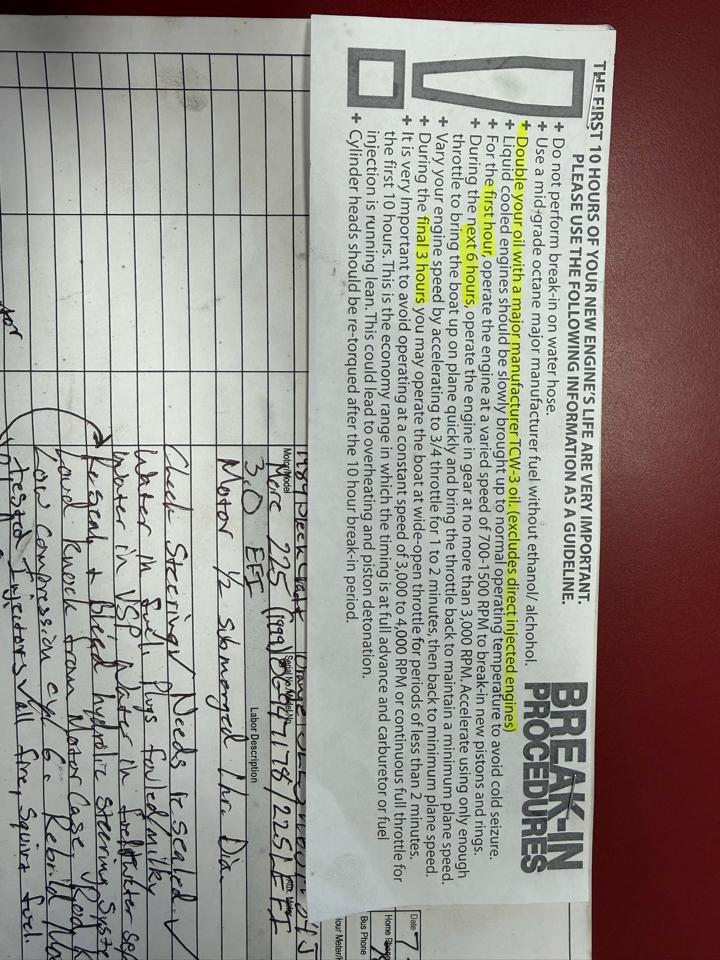 BREAK-IN
PROCEDURES
THE FIRST 10 HOURS OF YOUR NEW ENGINE'S LIFE ARE VERY IMPORTANT.
PLEASE USE THE FOLLOWING INFORMATION AS A GUIDELINE.
+ Do not perform break-in on water hose.
+ Use a mid-grade octane major manufacturer fuel without ethanol/ alchohol.
+ Double your oil with a major manufacturer TCW-3 oil. (excludes direct injected engines)
+ Liquid cooled engines should be slowly brought up to normal operating temperature to avoid cold seizure.
+ For the first hour, operate the engine at a varied speed of 700-1500 RPM to break-in new pistons and rings.
+ During the next 6 hours, operate the engine in gear at no more than 3,000 RPM. Accelerate using only enough
throttle to bring the boat up on plane quickly and bring the throttle back to maintain a minimum plane speed.
+ Vary your engine speed by accelerating to 3/4 throttle for 1 to 2 minutes, then back to minimum plane speed.
+ During the final 3 hours you may operate the boat at wide-open throttle for periods of less than 2 minutes.
+ It is very Important to avoid operating at a constant speed of 3,000 to 4,000 RPM or continuous full throttle for
the first 10 hours. This is the economy range in which the timing is at full advance and carburetor or fuel
injection is running lean. This could lead to overheating and piston detonation.
+ Cylinder heads should be re-torqued after the 10 hour break-in period.
Date 7
Home Phone
Bus Phone
Motor/Model
Merc 225 (1999) 225 EFI
3.0 EFI
Labor Description
Motor 1/2 submerged 1 hr. Dia
Check Steering ✓ Needs resealed ✓
Water in fuel, Plugs fouled/milky
Water in VSP Water in fuel/water se
Reseal + Bleed hydrolic steering syste
Loud Knock from Motor Case,
Low compression cyl 6. Rebuild
tor
tested injectors ✓ all fire, squirt fuel.